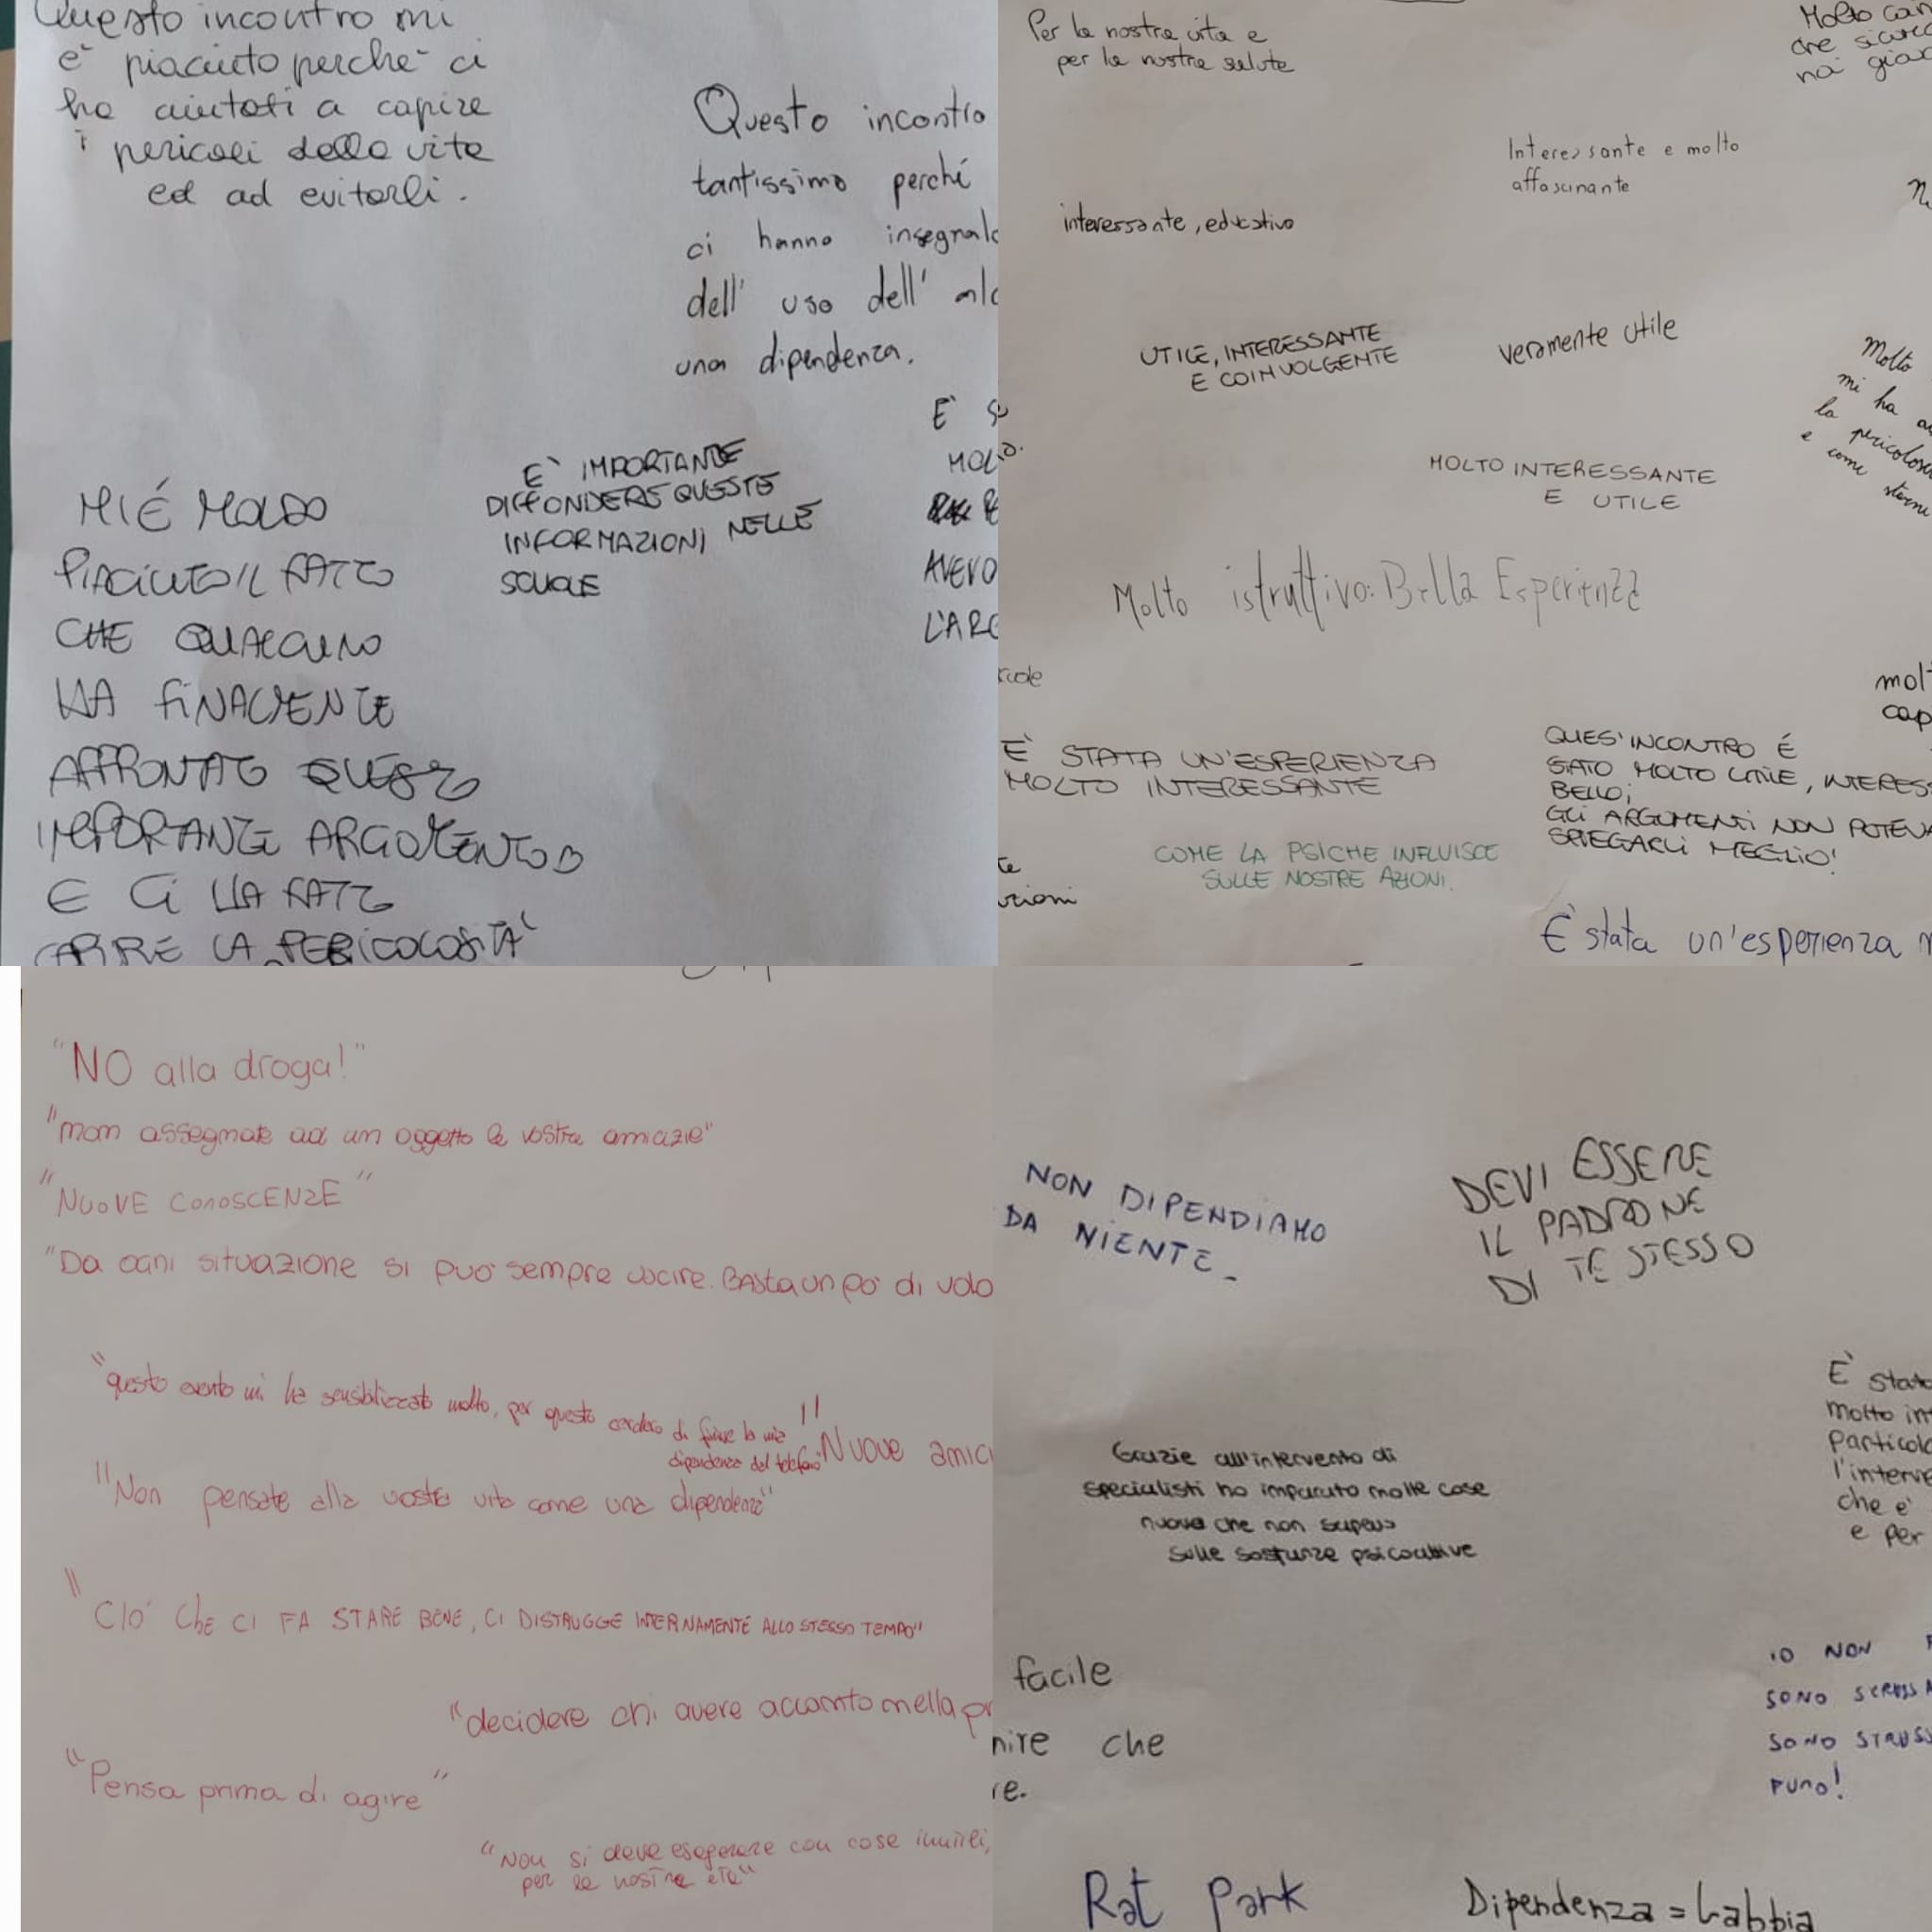 Questo incontro mi
è piaciuto perché ci
ha aiutati a capire
i pericoli della vita
ed ad evitarli.
Questo incontro
tantissimo perché
ci hanno
dell' uso dell'
una dipendenza.
È
AVEVO
È IMPORTANTE
DIFFONDERE QUESTE
INFORMAZIONI NELLE
SCUOLE
MI É MOLTO
PIACIUTO IL FATTO
CHE QUALCUNO
HA FINALMENTE
AFFRONTATO QUESTO
IMPORTANTE ARGOMENTO
E CI HA FATTO
CAPIRE LA PERICOLOSITÀ
Per la nostra vita e
per la nostra salute
Molto
che
noi
Interessante e molto
affascinante
interessante, educativo
UTILE, INTERESSANTE
E COINVOLGENTE
veramente utile
Molto
mi ha
la
e come
MOLTO INTERESSANTE
E UTILE
Molto istruttivo. Bella Esperienza
È STATA UN'ESPERIENZA
MOLTO INTERESSANTE
QUES'INCONTRO É
STATO MOLTO UTILE,
BELLO;
GLI ARGOMENTI NON
SPIEGARLI MEGLIO!
COME LA PSICHE INFLUISCE
SULLE NOSTRE AZIONI.
È stata un'esperienza
"NO alla droga!"
"non assegnate ad un oggetto le vostre amicizie"
"NUOVE CONOSCENZE"
"Da ogni situazione si può sempre uscire. Basta un po' di
"questo evento mi ha sensibilizzato molto, per questo di finire la mia
dipendenza dal telefono"
"Nuove
"Non pensate alla vostra vita come una dipendenza"
"CIO' ChE CI FA STARE BENE, CI DISTRUGGE INTERNAMENTE ALLO STESSO TEMPO"
"decidere chi avere accanto nella
"Pensa prima di agire"
"Non si deve esagerare con cose inutili,
per la nostra età"
NON DIPENDIAMO
DA NIENTE.
DEVI ESSERE
IL PADRONE
DI TE STESSO
È
molto
che è
e per
Grazie all'intervento di
specialisti ho imparato molte cose
nuove che non sapevo
sulle sostanze psicoattive
facile
che
IO NON
SONO
SONO
PUNO!
Rat Park
Dipendenza = Gabbia